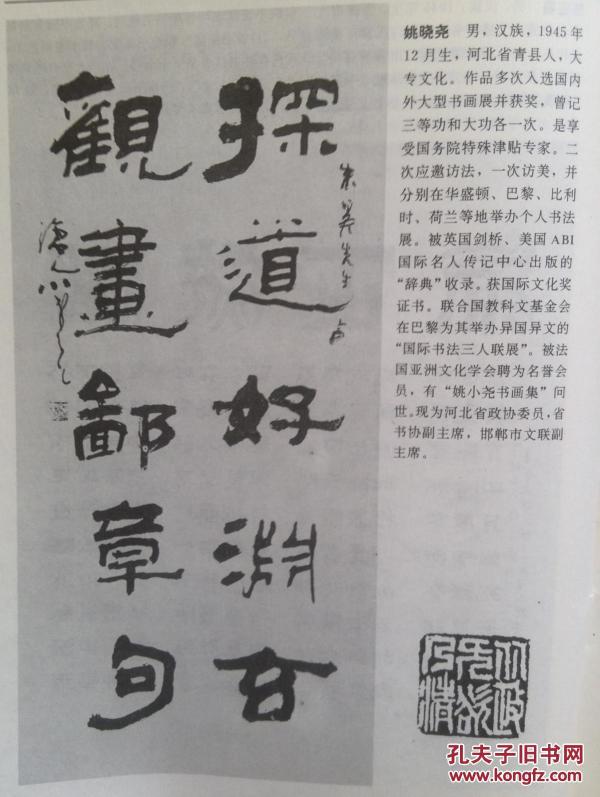 探道好淵玄
觀畫鄙章句
姚晓尧 男，汉族，1945年
12月生，河北省青县人，大
专文化。作品多次入选国内
外大型书画展并获奖，曾记
三等功和大功各一次。是享
受国务院特殊津贴专家。二
次应邀访法，一次访美，并
分别在华盛顿、巴黎、比利
时、荷兰等地举办个人书法
展。被英国剑桥、美国ABI
国际名人传记中心出版的
“辞典”收录。获国际文化奖
证书。联合国教科文基金会
在巴黎为其举办异国异文的
“国际书法三人联展”。被法
国亚洲文化学会聘为名誉会
员，有“姚小尧书画集”问
世。现为河北省政协委员，省
书协副主席，邯郸市文联副
主席。
孔夫子旧书网
www.kongfz.com